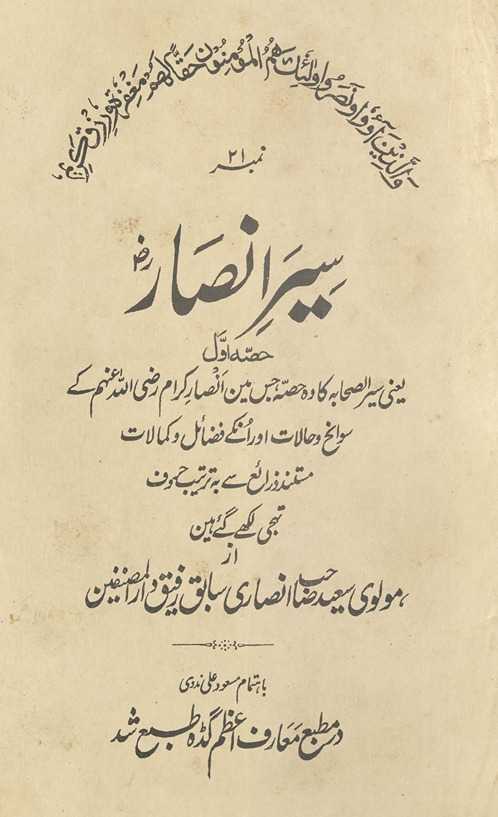 وَالَّذِیْنَ اٰوَوْا وَنَصَرُوْا اُولٰٓئِكَ هُمُ الْمُؤْمِنُوْنَ حَقًّا لَهُمْ مَغْفِرَةٌ وَّرِزْقٌ كَرِیْمٌ
نمبر ۲۱
سِیَرِ انصَار رضؓ
حصّہ اوّل
یعنی سیر الصحابہ کا وہ حصّہ جس مین انصارِ کرام رضی اللہ عنہم کے
سوانح و حالات اور اُنکے فضائل و کمالات
مستند ذرائع سے بہ ترتیب حروف
تہجی لکھے گئے ہین
از
مولوی سعید صاحب انصاری سابق رفیق دار المصنفین،
باہتمام مسعود علی ندوی
در مطبع معارف اعظم گڈہ طبع شد